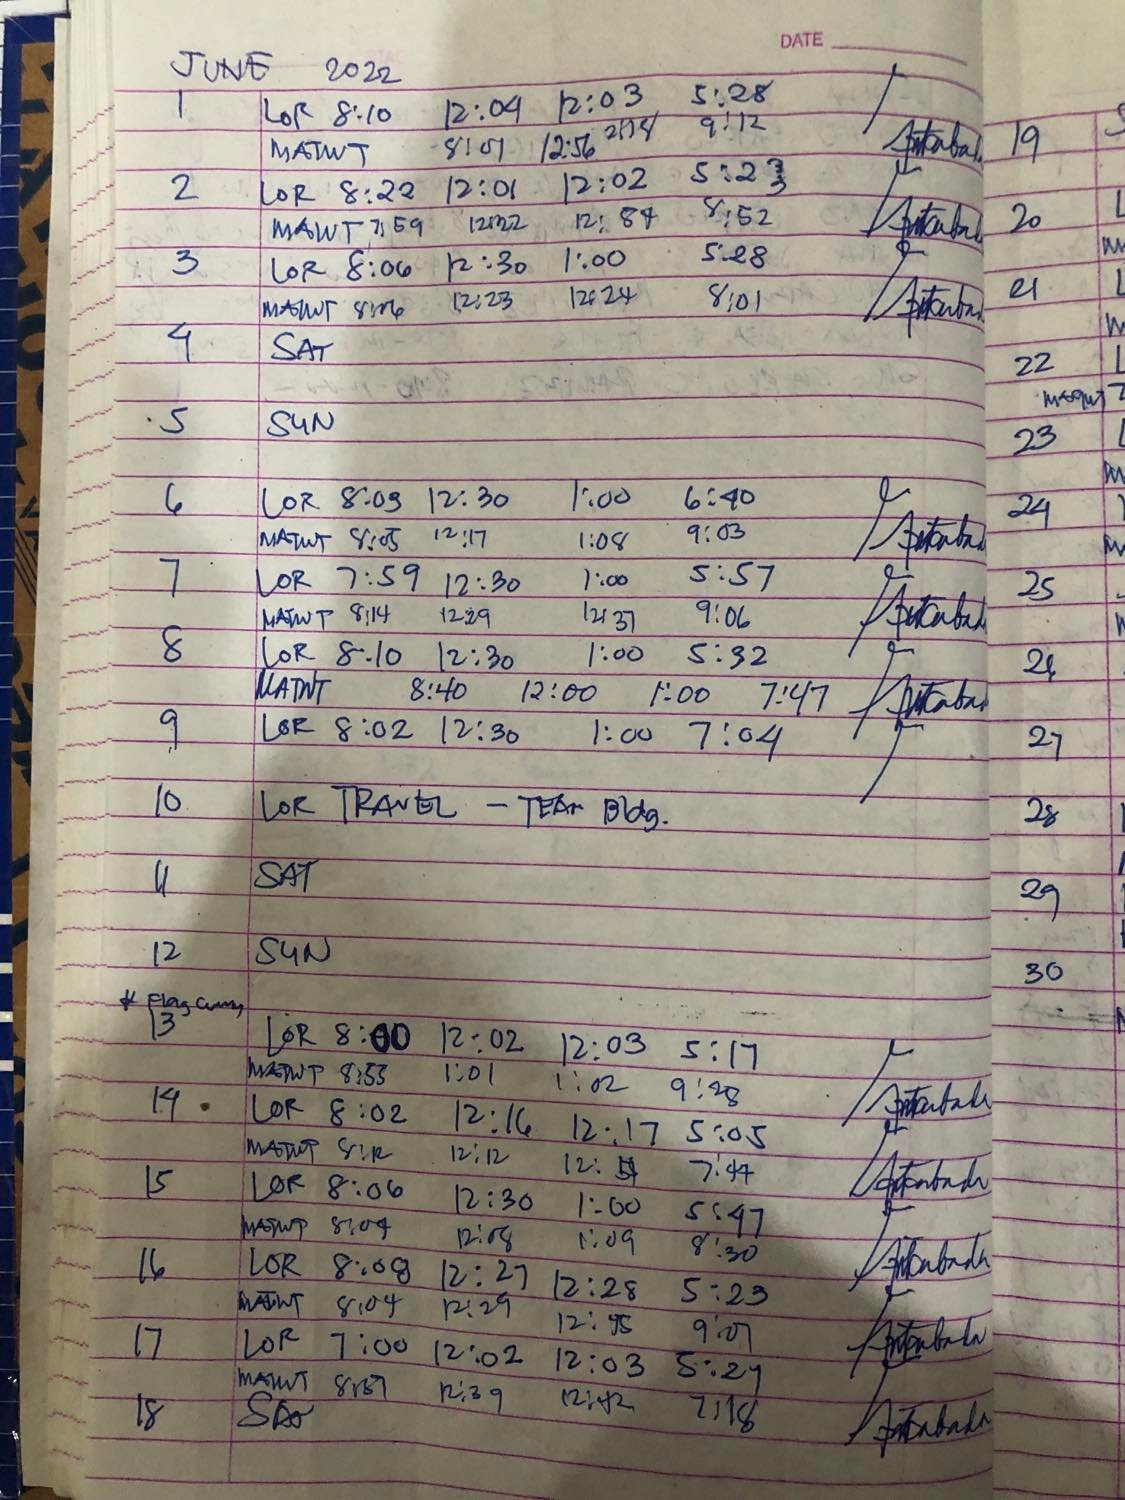 DATE
JUNE 2022
1 LOR 8:10 12:04 12:03 5:28
MATNT 8:01 12:56 2:18 9:12
2 LOR 8:22 12:01 12:02 5:23
MATNT 7:59 12:22 8:52
3 LOR 8:06 12:30 1:00 5:28
MATNT 8:06 12:23 12:24 8:01
4 SAT
5 SUN
6 LOR 8:03 12:30 1:00 6:40
MATNT 8:05 12:17 1:08 9:03
7 LOR 7:59 12:30 1:00 5:57
MATNT 8:14 12:29 12:37 9:06
8 LOR 8:10 12:30 1:00 5:32
MATNT 8:40 12:00 1:00 7:47
9 LOR 8:02 12:30 1:00 7:04
10 LOR TRAVEL - TEAM Bldg.
11 SAT
12 SUN
* Flag
13 LOR 8:00 12:02 12:03 5:17
MATNT 8:55 1:01 1:02 9:28
14 LOR 8:02 12:16 12:17 5:05
MATNT 8:12 12:12 7:44
15 LOR 8:06 12:30 1:00 5:47
MATNT 8:04 12:08 1:09 8:30
16 LOR 8:08 12:27 12:28 5:23
MATNT 8:04 12:29 12:45 9:07
17 LOR 7:00 12:02 12:03 5:27
MATNT 8:37 12:39 12:42 7:18
18
19
20
21
22
23
24
25
26
27
28
29
30